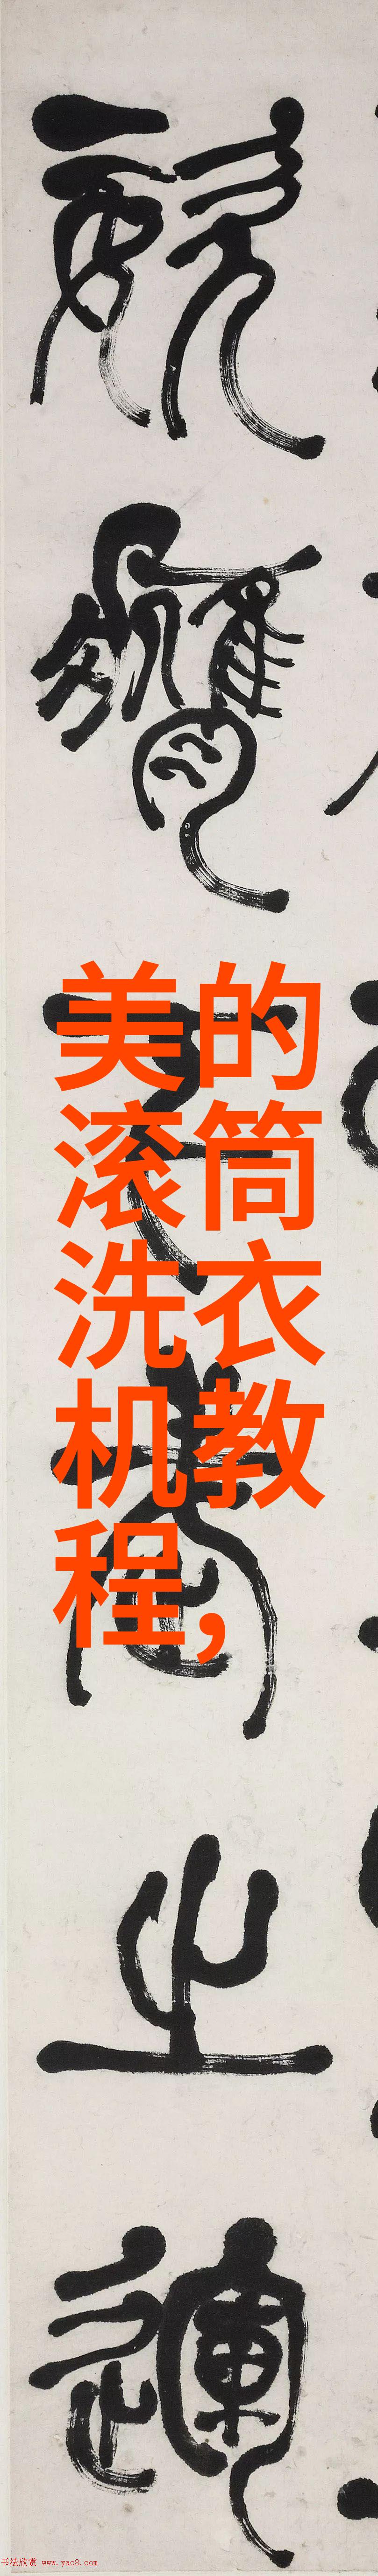 膺
美的
滚筒
洗衣
机教
程,
之
運
书法欣赏 www.yac8.com